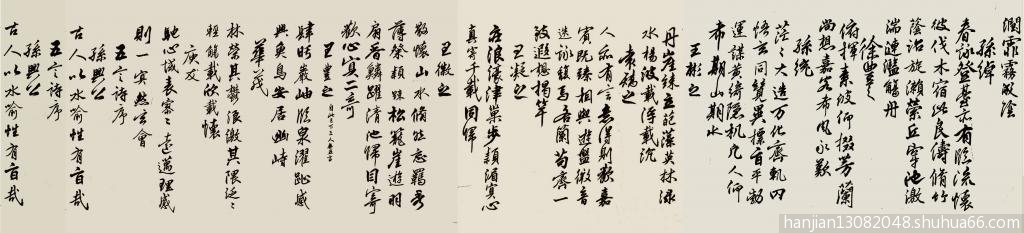 潤霏霧成陰
孫綽
春詠登臺亦有臨流懷
彼伐木宿此良儔脩竹
蔭沼旋瀨縈丘穿池激
湍連濫觴舟
徐豐之
俯揮素波仰掇芳蘭
尚想嘉客希風永歎
孫統
茫〻大造萬化齊軌罔
悟玄同競異摽旨平勃
運謀黃綺隱机凡人仰
希期山期水
王彬之
丹崖竦立葩藻映林淥
水揚波載浮載沉
袁嶠之
人亦有言意得則歡嘉
賓既臻相與遊盤微音
迭詠馥焉若蘭苟齊一
致遐想揭竿
王凝之
莊浪濠津巢步潁湄冥心
真寄千載同歸
王徽之
散懷山水翛然忘羈秀
薄粲穎疎松籠崖遊羽
扇霄鱗躍清池歸目寄
歡心冥二奇
王豐之
肆盼巖岫臨泉濯趾感
興魚鳥安居幽峙
華茂
林榮其鬱浪激其隈泛〻
輕觴載欣載懷
庾友
馳心域表寥〻遠邁理感
則一冥然玄會
五言詩序
孫興公
古人以水喻性有旨哉
五言詩序
孫興公
古人以水喻性有旨哉
hanjian13082048.shuhua66.com